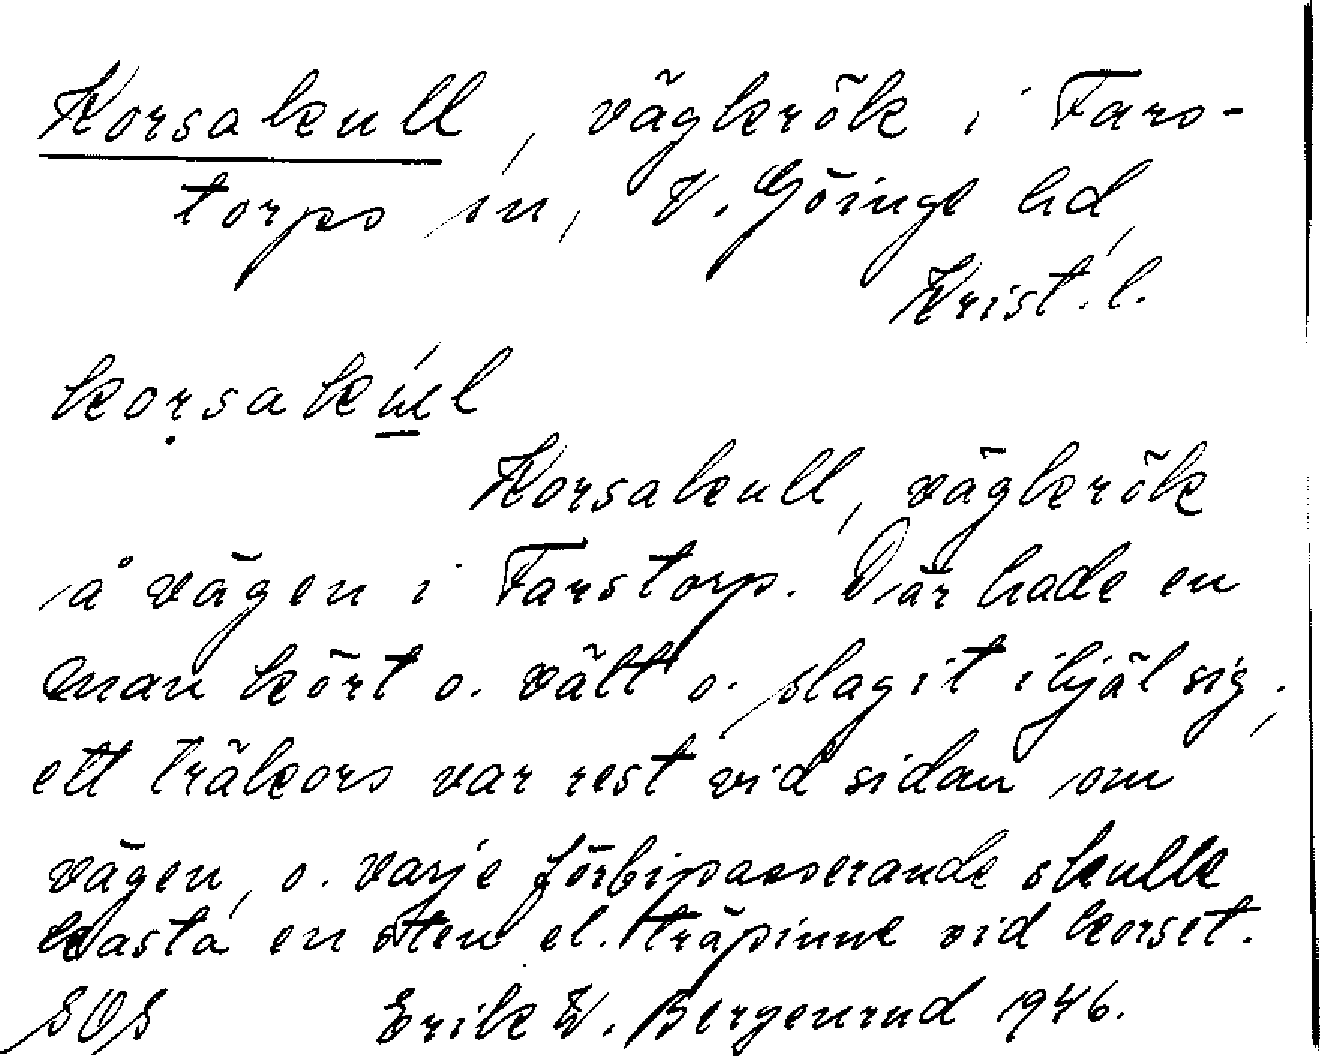 Korsakull, vägkrök i Fars-
torps sn, V. Göinge hd,
Krist. l.
Korsakull, vägkrök
å vägen i Farstorp. Där hade en
man kört o. vält o. slagit ihjäl sig;
ett träkors var rest vid sidan om
vägen, o. varje förbipasserande skulle
kasta en sten el. träpinne vid korset.
SOS Erik W. Bergenrud 1946.